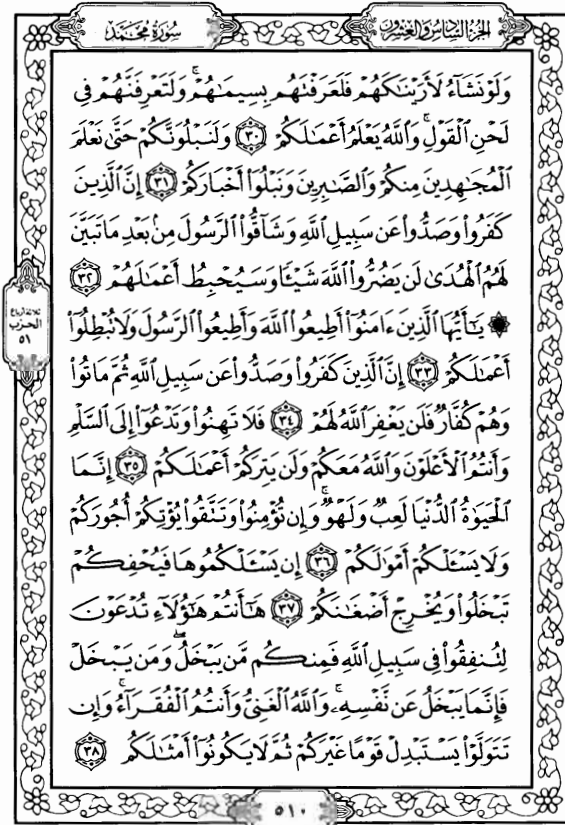 سُورَةُ مُحَمَّد
الجُزْءُ السَّادِسُ وَالعِشْرُونَ
وَلَوْ نَشَآءُ لَأَرَيْنَٰكَهُمْ فَلَعَرَفْتَهُم بِسِيمَٰهُمْ ۚ وَلَتَعْرِفَنَّهُمْ فِى
لَحْنِ ٱلْقَوْلِ ۚ وَٱللَّهُ يَعْلَمُ أَعْمَٰلَكُمْ ٣٠ وَلَنَبْلُوَنَّكُمْ حَتَّىٰ نَعْلَمَ
ٱلْمُجَٰهِدِينَ مِنكُمْ وَٱلصَّٰبِرِينَ وَنَبْلُوَا۟ أَخْبَارَكُمْ ٣١ إِنَّ ٱلَّذِينَ
كَفَرُوا۟ وَصَدُّوا۟ عَن سَبِيلِ ٱللَّهِ وَشَآقُّوا۟ ٱلرَّسُولَ مِنۢ بَعْدِ مَا تَبَيَّنَ
لَهُمُ ٱلْهُدَىٰ لَن يَضُرُّوا۟ ٱللَّهَ شَيْـًٔا وَسَيُحْبِطُ أَعْمَٰلَهُمْ ٣٢
۞ يَٰٓأَيُّهَا ٱلَّذِينَ ءَامَنُوٓا۟ أَطِيعُوا۟ ٱللَّهَ وَأَطِيعُوا۟ ٱلرَّسُولَ وَلَا تُبْطِلُوٓا۟
أَعْمَٰلَكُمْ ٣٣ إِنَّ ٱلَّذِينَ كَفَرُوا۟ وَصَدُّوا۟ عَن سَبِيلِ ٱللَّهِ ثُمَّ مَاتُوا۟
وَهُمْ كُفَّارٌ فَلَن يَغْفِرَ ٱللَّهُ لَهُمْ ٣٤ فَلَا تَهِنُوا۟ وَتَدْعُوٓا۟ إِلَى ٱلسَّلْمِ
وَأَنتُمُ ٱلْأَعْلَوْنَ وَٱللَّهُ مَعَكُمْ وَلَن يَتِرَكُمْ أَعْمَٰلَكُمْ ٣٥ إِنَّمَا
ٱلْحَيَوٰةُ ٱلدُّنْيَا لَعِبٌ وَلَهْوٌ ۚ وَإِن تُؤْمِنُوا۟ وَتَتَّقُوا۟ يُؤْتِكُمْ أُجُورَكُمْ
وَلَا يَسْـَٔلْكُمْ أَمْوَٰلَكُمْ ٣٦ إِن يَسْـَٔلْكُمُوهَا فَيُحْفِكُمْ
تَبْخَلُوا۟ وَيُخْرِجْ أَضْغَٰنَكُمْ ٣٧ هَٰٓأَنتُمْ هَٰٓؤُلَآءِ تُدْعَوْنَ
لِتُنفِقُوا۟ فِى سَبِيلِ ٱللَّهِ فَمِنكُم مَّن يَبْخَلُ ۖ وَمَن يَبْخَلْ
فَإِنَّمَا يَبْخَلُ عَن نَّفْسِهِۦ ۚ وَٱللَّهُ ٱلْغَنِىُّ وَأَنتُمُ ٱلْفُقَرَآءُ ۚ وَإِن
تَتَوَلَّوْا۟ يَسْتَبْدِلْ قَوْمًا غَيْرَكُمْ ثُمَّ لَا يَكُونُوٓا۟ أَمْثَٰلَكُم ٣٨
ثلاثة أرباع
الحزب
٥١
٥١٠